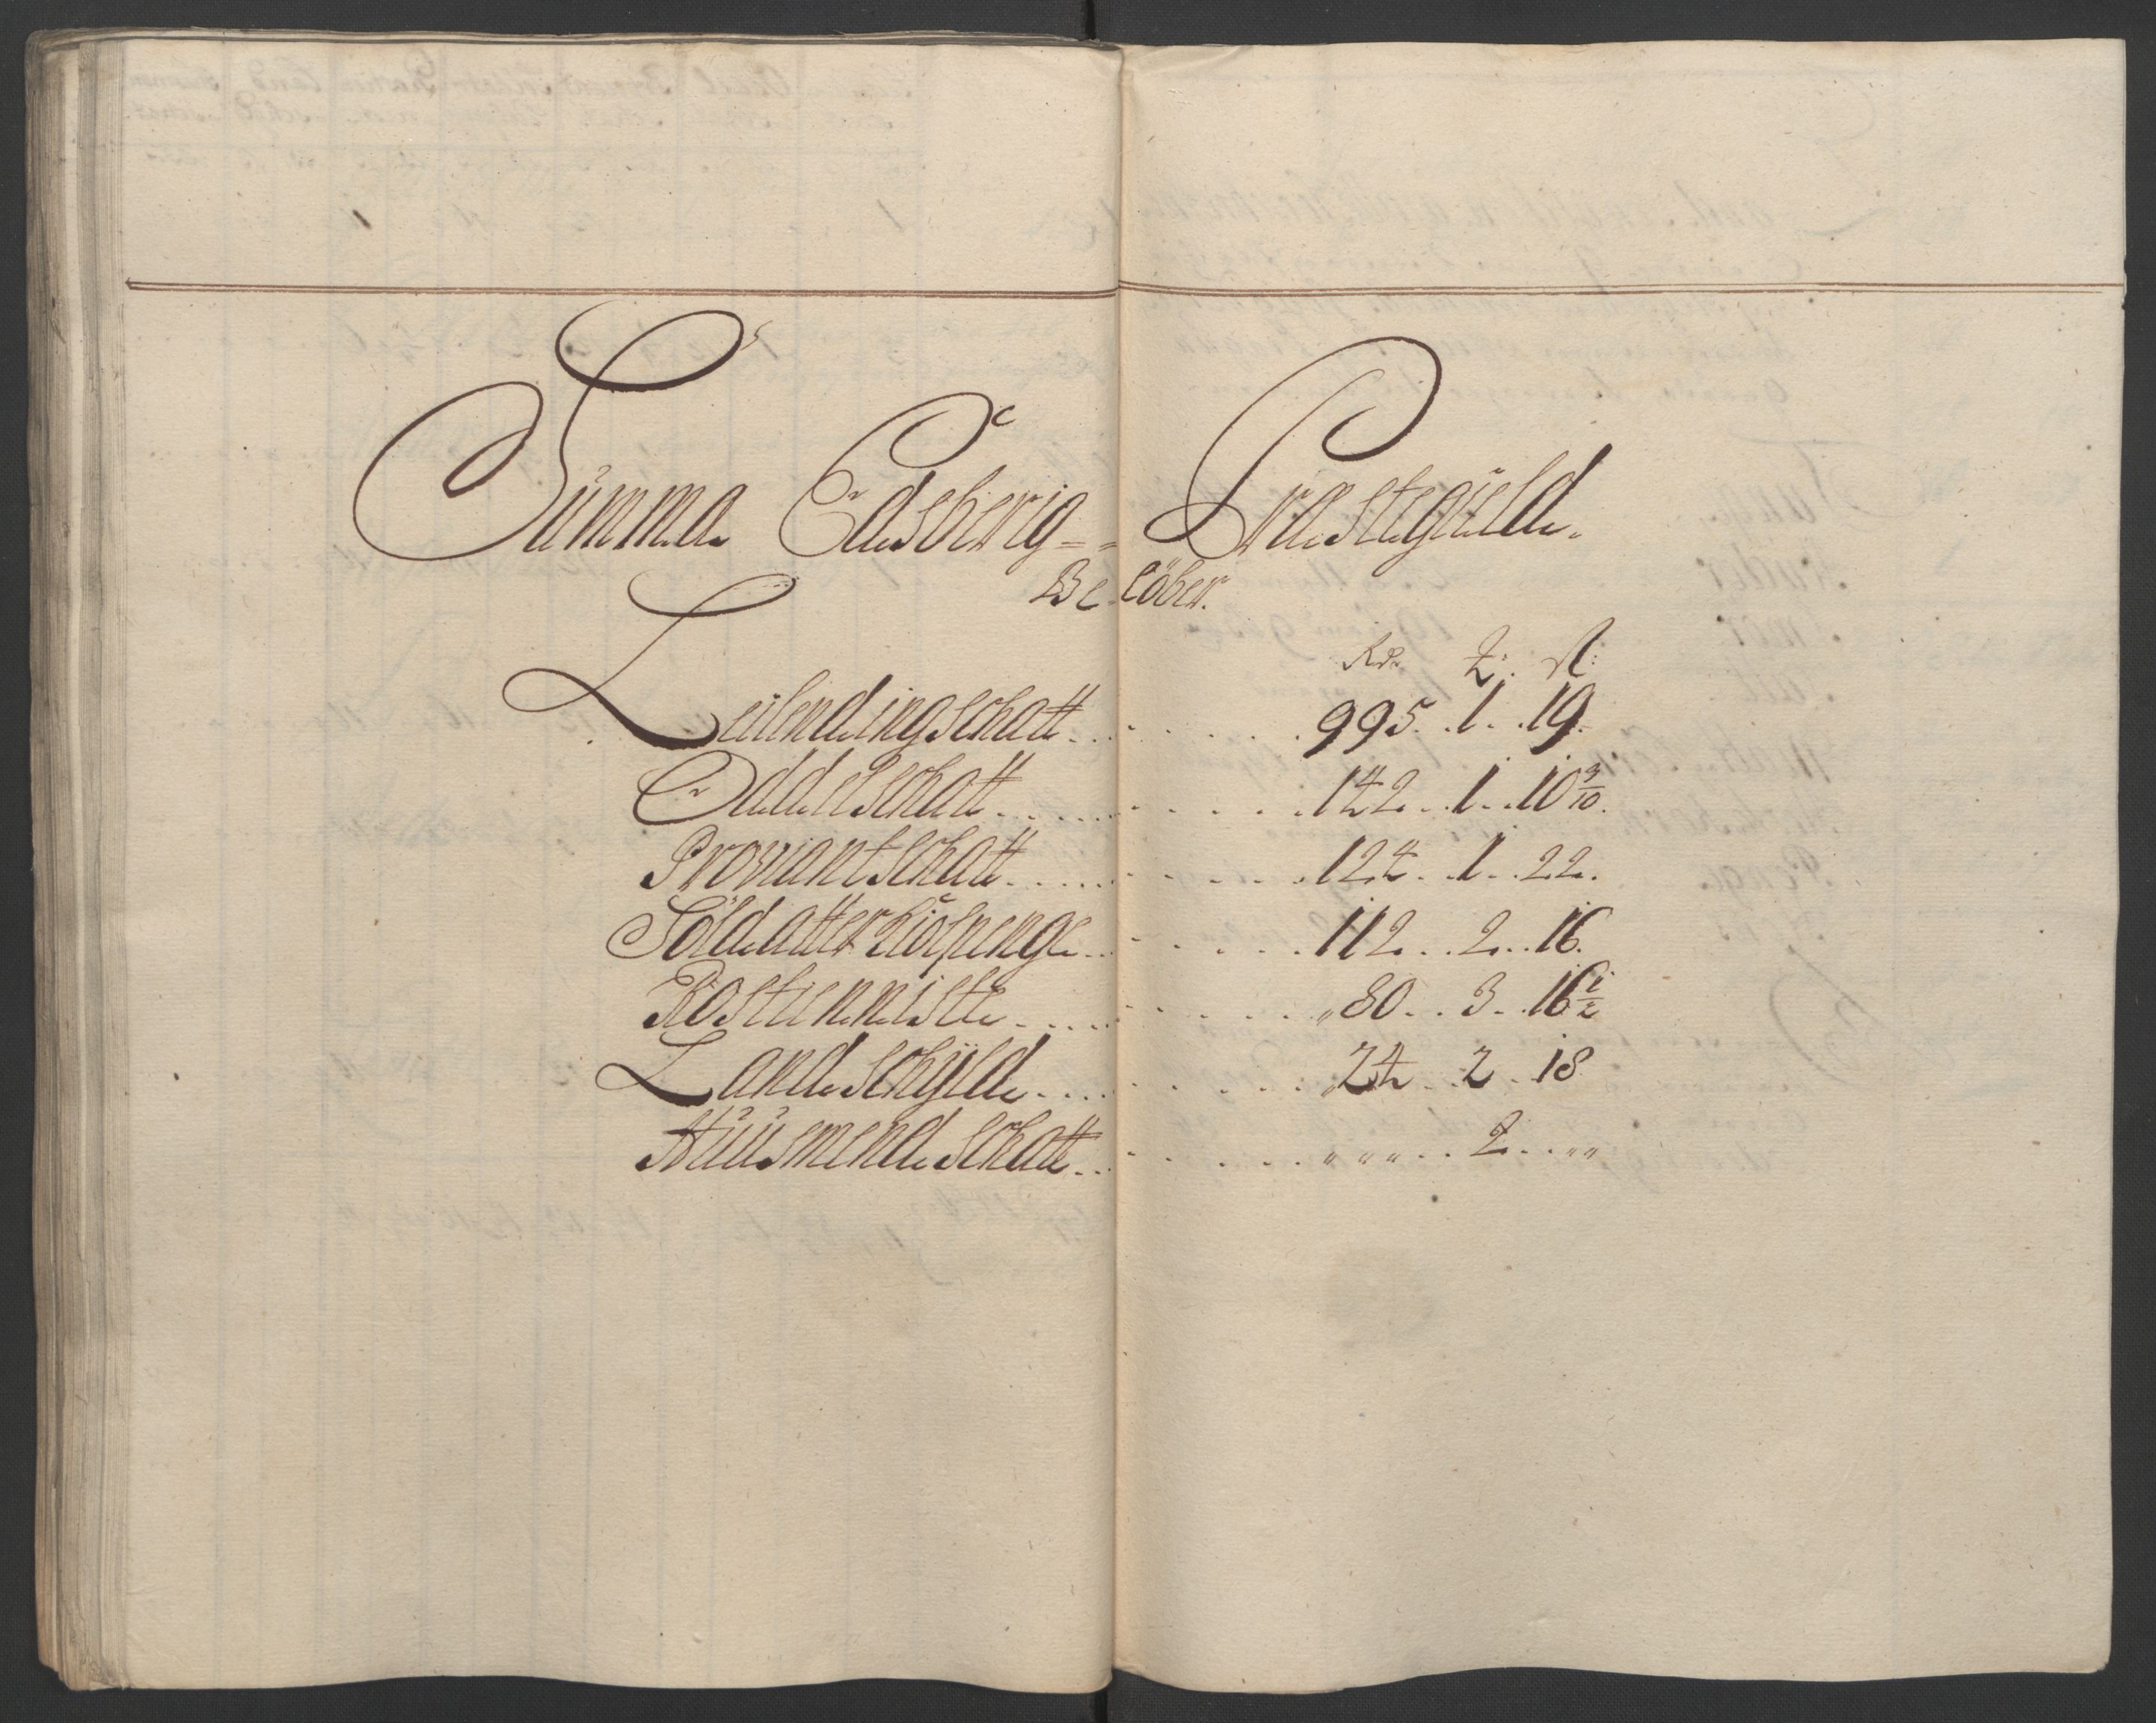 Summa Edsberig= Præstegield.
Belöber.
Rdr. ƶ: ß:
Leilendingschatt . . . . . 995. 1. 19.
Oddelschatt . . . . . 142. 1. 10 3/10.
Proviantschatt . . . . . 124. 1. 22.
Soldatterskiöspenge . . . . . 112. 2. 16.
Rostienniste . . . . . „80. 3. 16 1/2
Landschÿld . . . . . „24. 2. 18
Huusmendschatt . . . . . „ „ „ . . 2. . . „ „